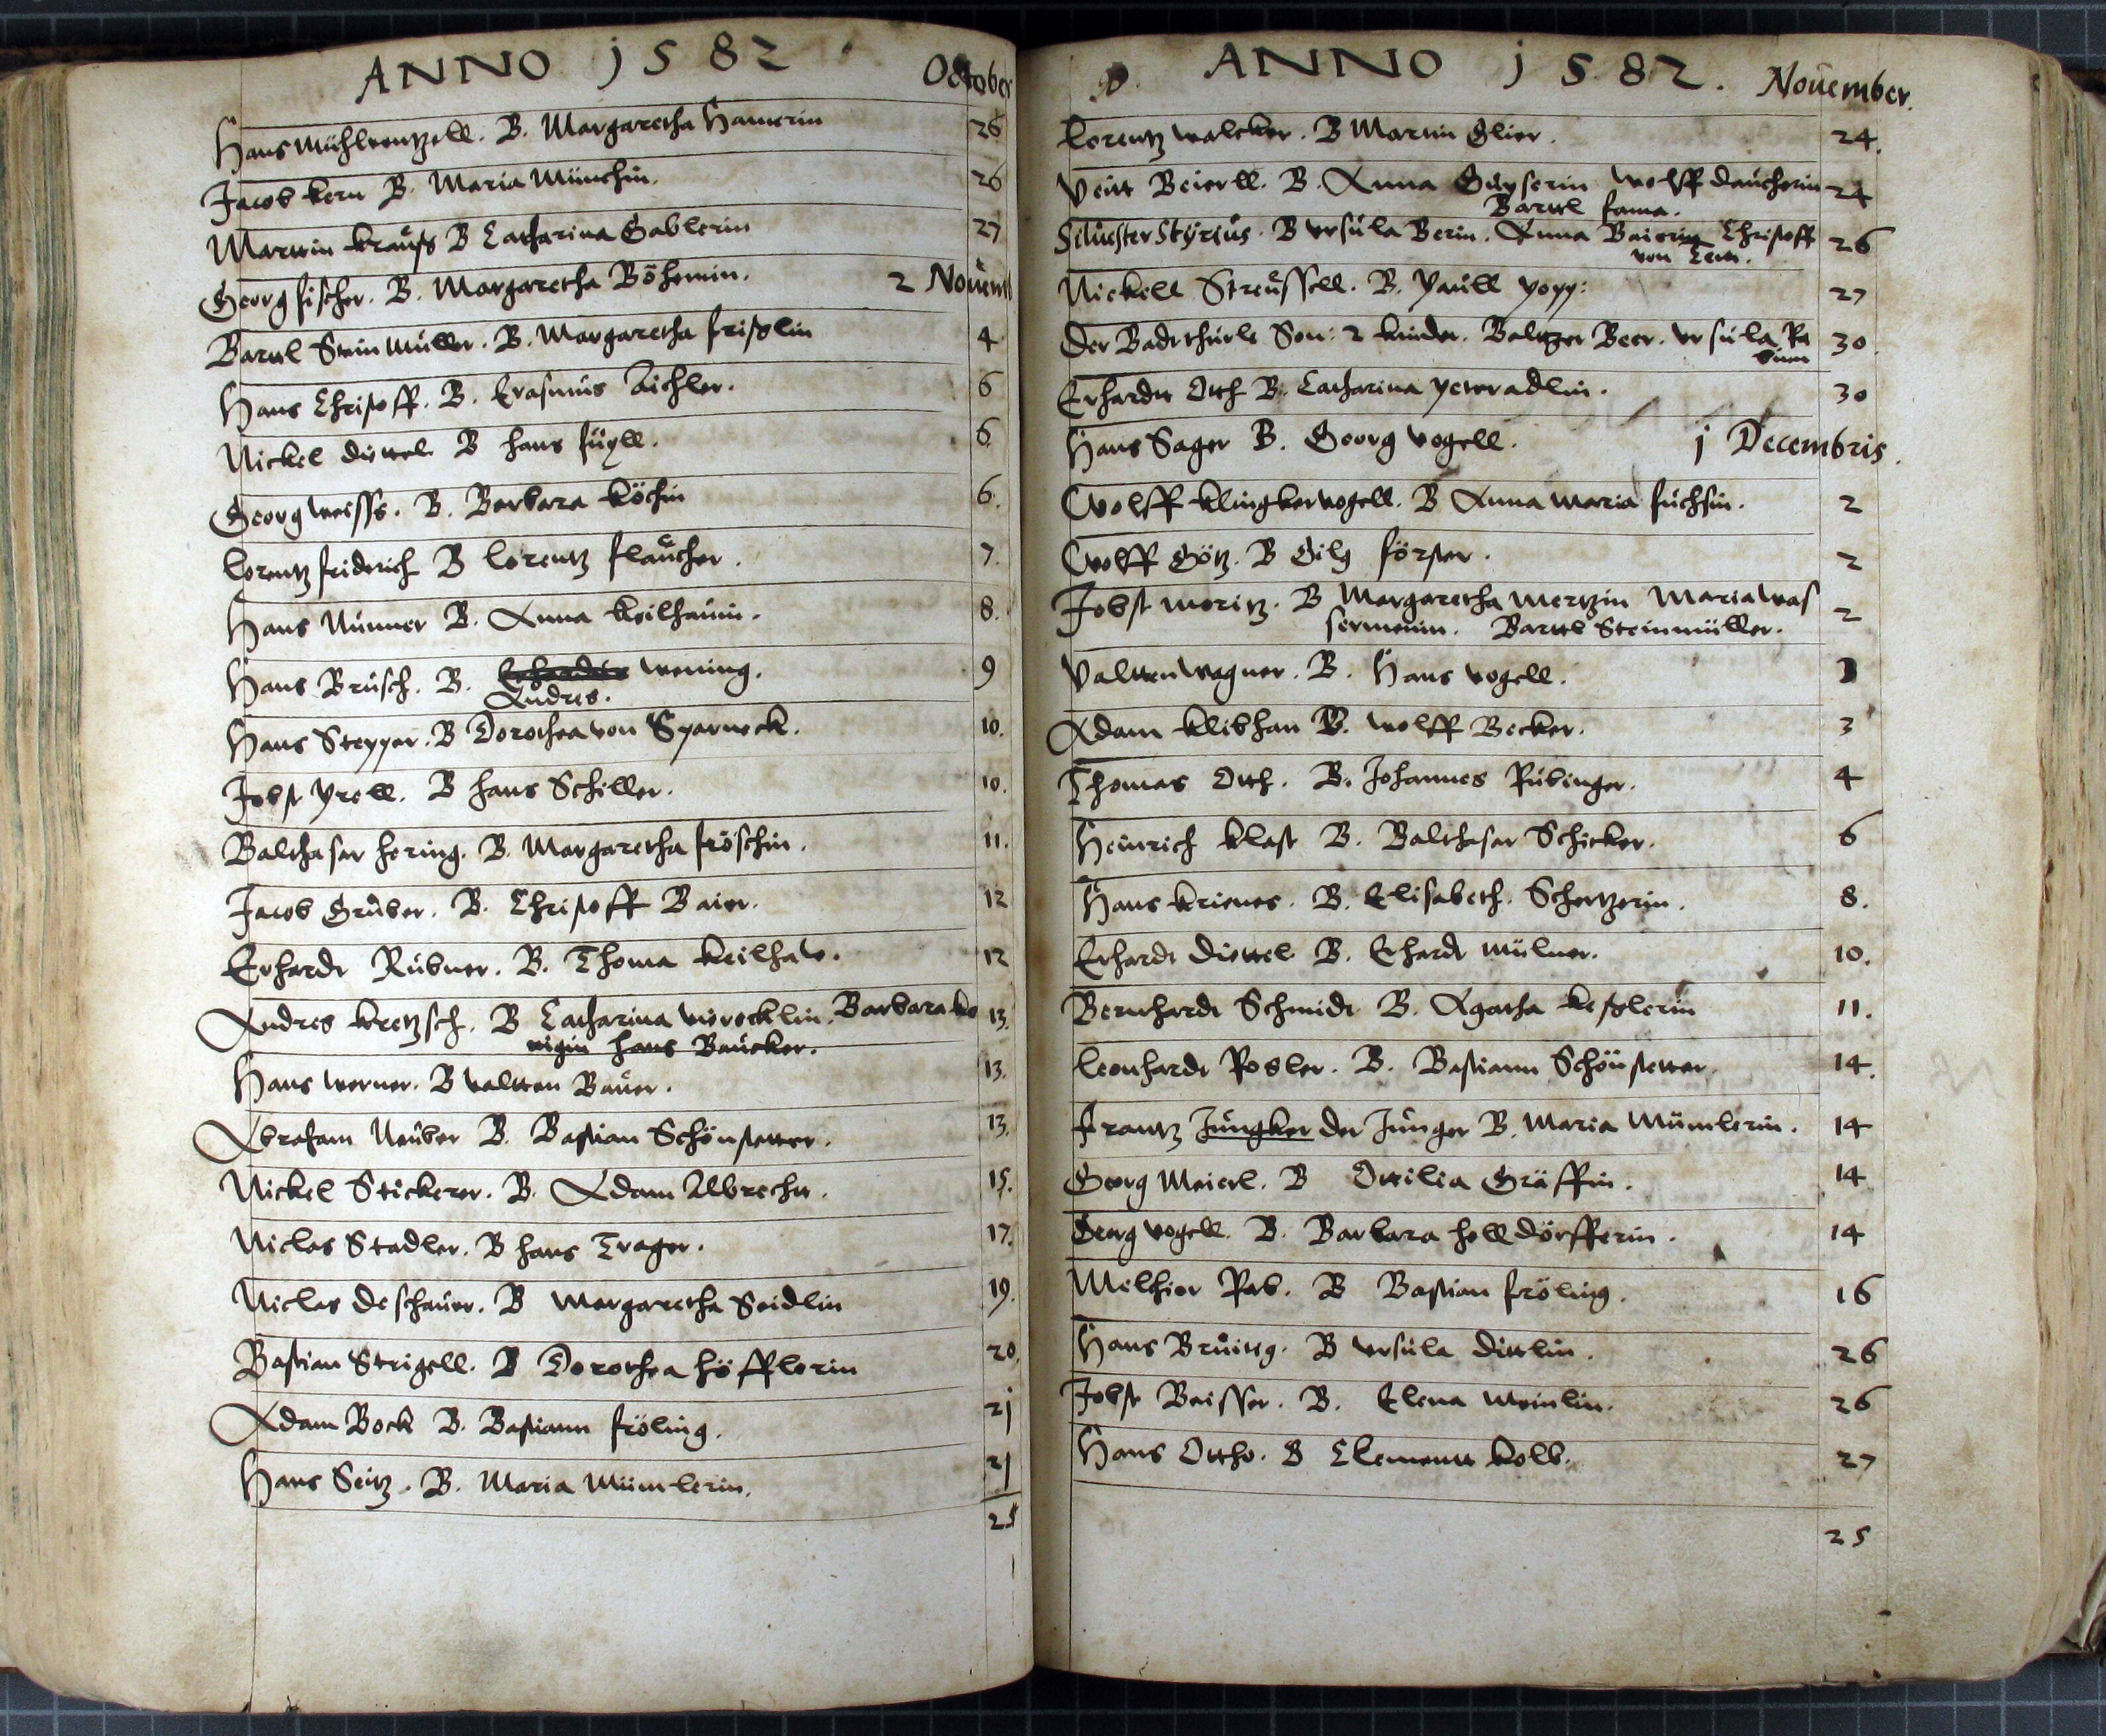 ANNO 1582 October
Hans Mühlwentzell. B. Margaretha Hamerin 26
Jacob kern B. Maria Münchin. 26
Marttin krauß B Catharina Gablerin 27
Georg fischer. B. Margaretha Böhemin. 2 Novem
Barttl Stein Müller. B. Margaretha frislin 4
Hans Christoff. B. Erasmus Aichler. 6
Nickel düttel B hans 6
Georg weisss. B. Barbara köchin 6.
Lorentz friderich B Lorentz flaucher. 7.
Hans Nünner B. Anna keilhauin. 8.
Hans Brusch. B. Erhardtt wening. 9
Andres.
Hans Stepper. B Dorothea von Sparneck. 10.
Jobst prell. B hans Schiller. 10.
Balthasar hering. B. Margaretha fröschin. 11.
Jacob Gruber. B. Christoff Baier. 12
Erhardt Rübner. B. Thoma keilhaw. 12
Andres kretzsch. B Catharina virecklin. Barbara kö 13.
nigin hans Baucker.
Hans werner. B valtten Bauer. 13.
Abraham Neuber B. Bastian Schönstetter. 13.
Nickel Stickerer. B. Adam Albrecht. 15.
Niclas Stadler. B hans Trager. 17.
Niclas deschauer. B Margaretha Seidlin 19.
Bastian Strigell. B Dorothea höfflerin 20.
Adam Bock B. Bastiann fröling. 21
Hans Seitz. B. Maria Mümlerin. 21
25
ANNO 1582. November.
Lorentz walcker. B Martin Glier. 24.
Veitt Beierll. B. Anna Wolff daucherin 24
Barttl fama.
Siluester Styrius. B vrsula Berin. Anna Baierin Christoff 26
von
Nickell Streussell. B. Paull popp: 27
Der Badtthürls Son. 2 kinder. Baltzer Beer. vrsula Ra 30.
Erhardtt Otth B. Catharina peteradlin. 30
Hans Sager B. Georg vogell. 1 Decembris.
Wolff klingkervogell. B Anna maria füchsin. 2
Wolff Götz. B Gilg förster. 2
Jobst moritz. B Margaretha Mertzin Maria was 2
sermenin. Barttl Steinmüller.
Valtten wagner. B. Hans vogell. 3
Adam klibhan B. wolff Becker. 3
Thomas Otth. B. Johannes Rübinger. 4
Heinrich klast B. Balthasar Schicker. 6
Hans krienes. B. Elisabeth Schertzerin. 8.
Erhardt düttel B. Erhardt mülner. 10.
Bernhardt Schmidt B. Agatha keßlerin 11.
Leonhardt Posler. B. Bastiann Schönstetter. 14.
Frantz Jungker der Junger B. Maria Mümlerin. 14
Georg Meierl. B Ottilia Gräffin. 14
Georg vogell. B. Barbara helldörfferin. 14
Melchior Rab. B Bastian fröling. 16
Hans Brüttg. B vrsula dittlin. 26
Jobst Beisser. B. Elena weinlin. 26
Hans Ottho. B Clementt kolb. 27
25